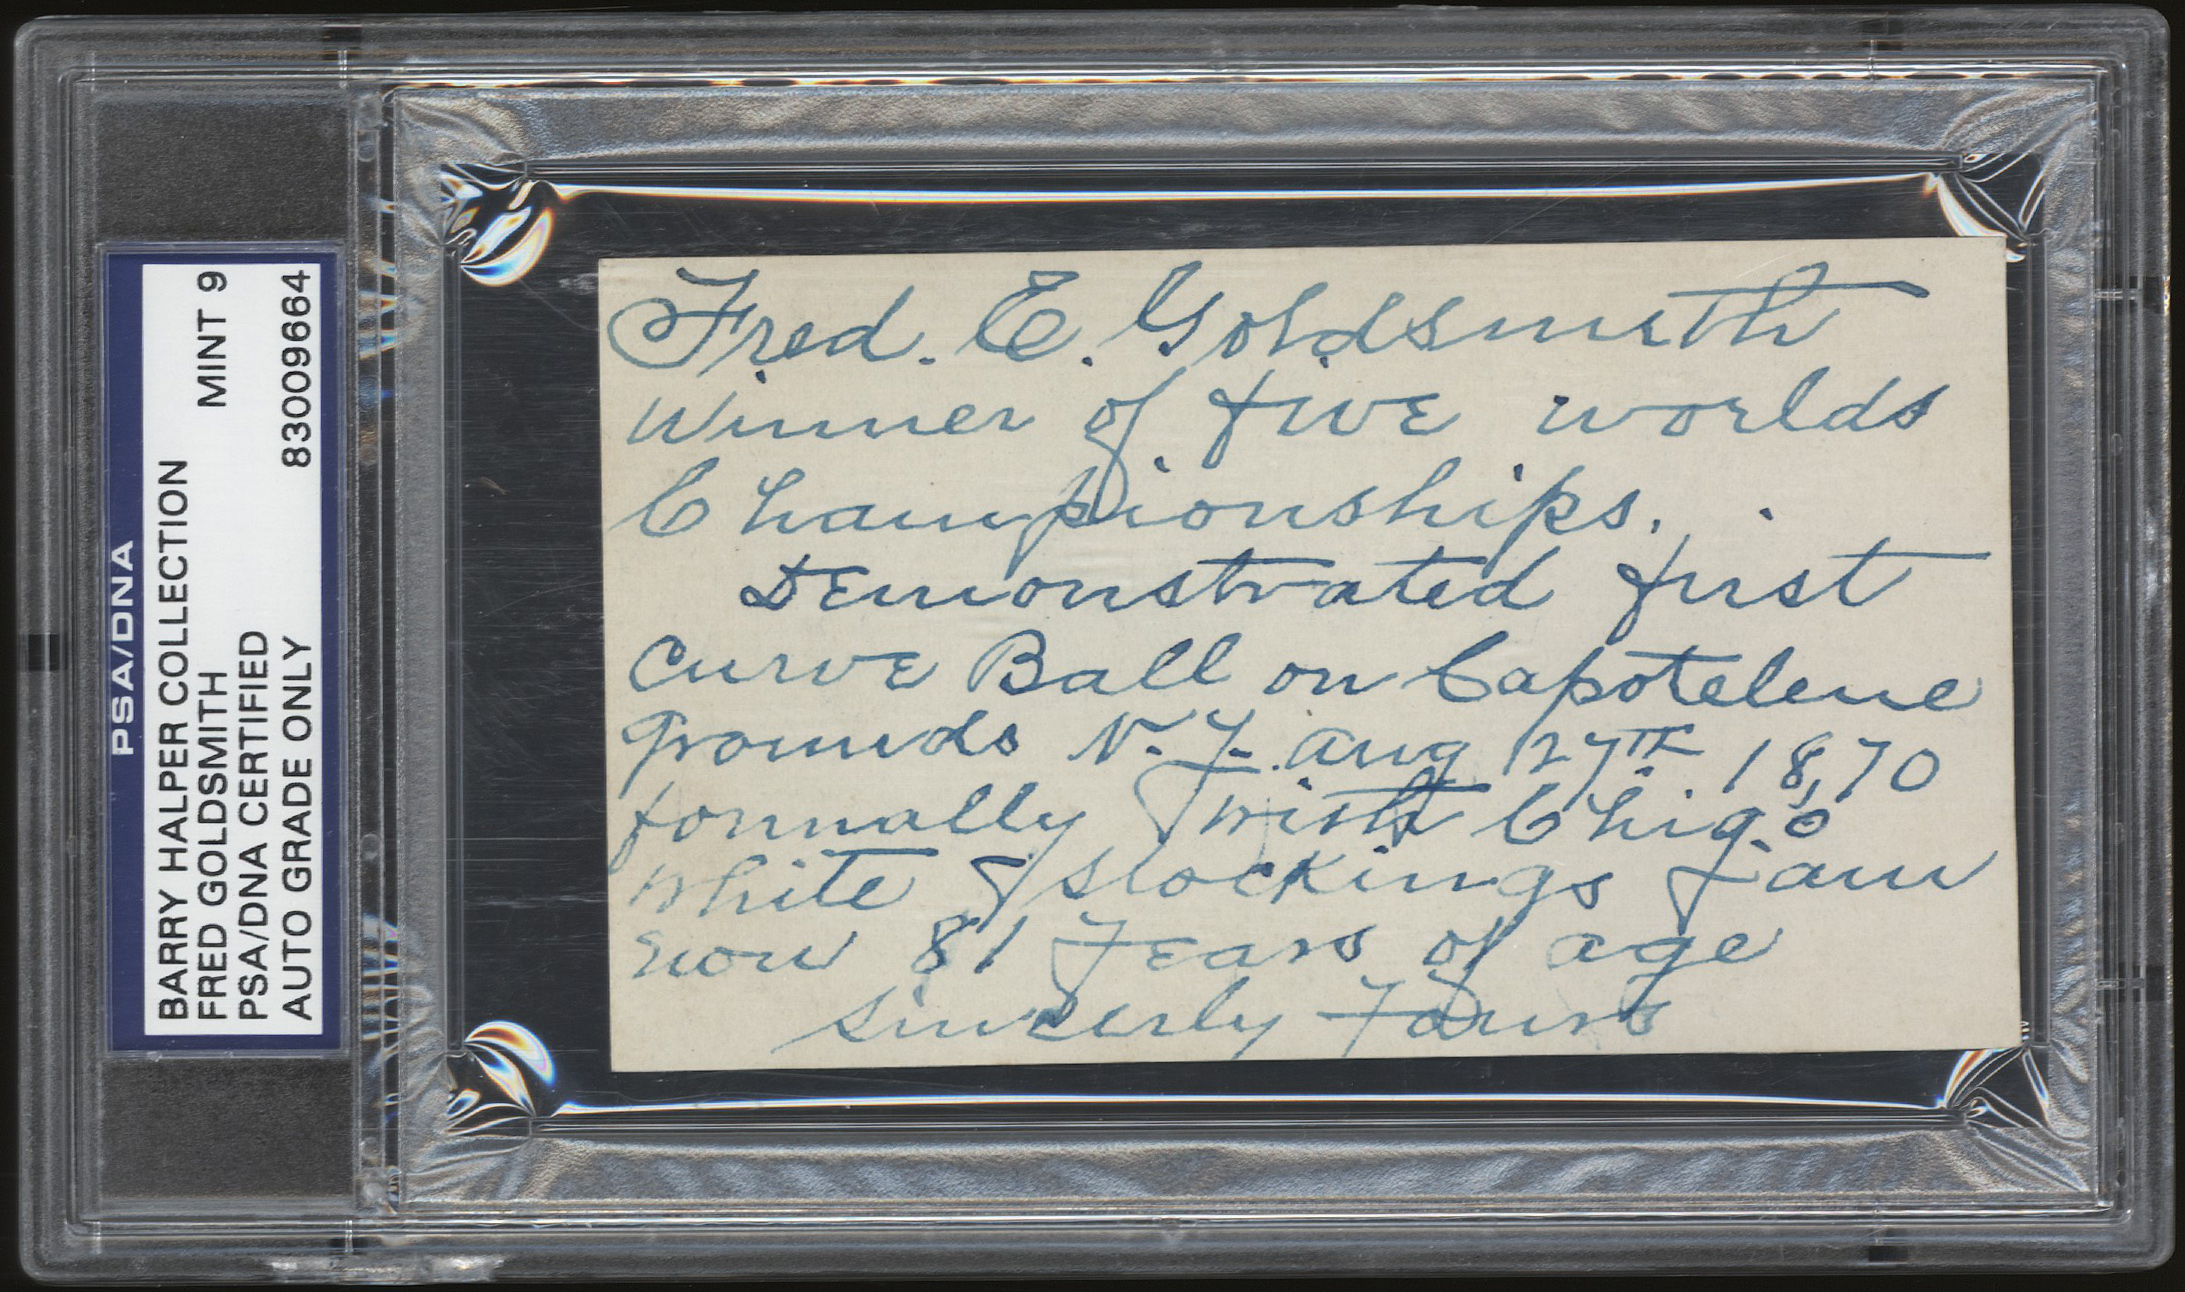 PSA/DNA
BARRY HALPER COLLECTION
FRED GOLDSMITH MINT 9
PSA/DNA CERTIFIED
AUTO GRADE ONLY 83009664
Fred. E. Goldsmith
Winner of five worlds
Championships.
Demonstrated first
Curve Ball on Capotelene
grounds N.Y. Aug 27TH 18,70
formally with Chigo
White Stockings I am
now 81 Years of age
Sincerly Yours